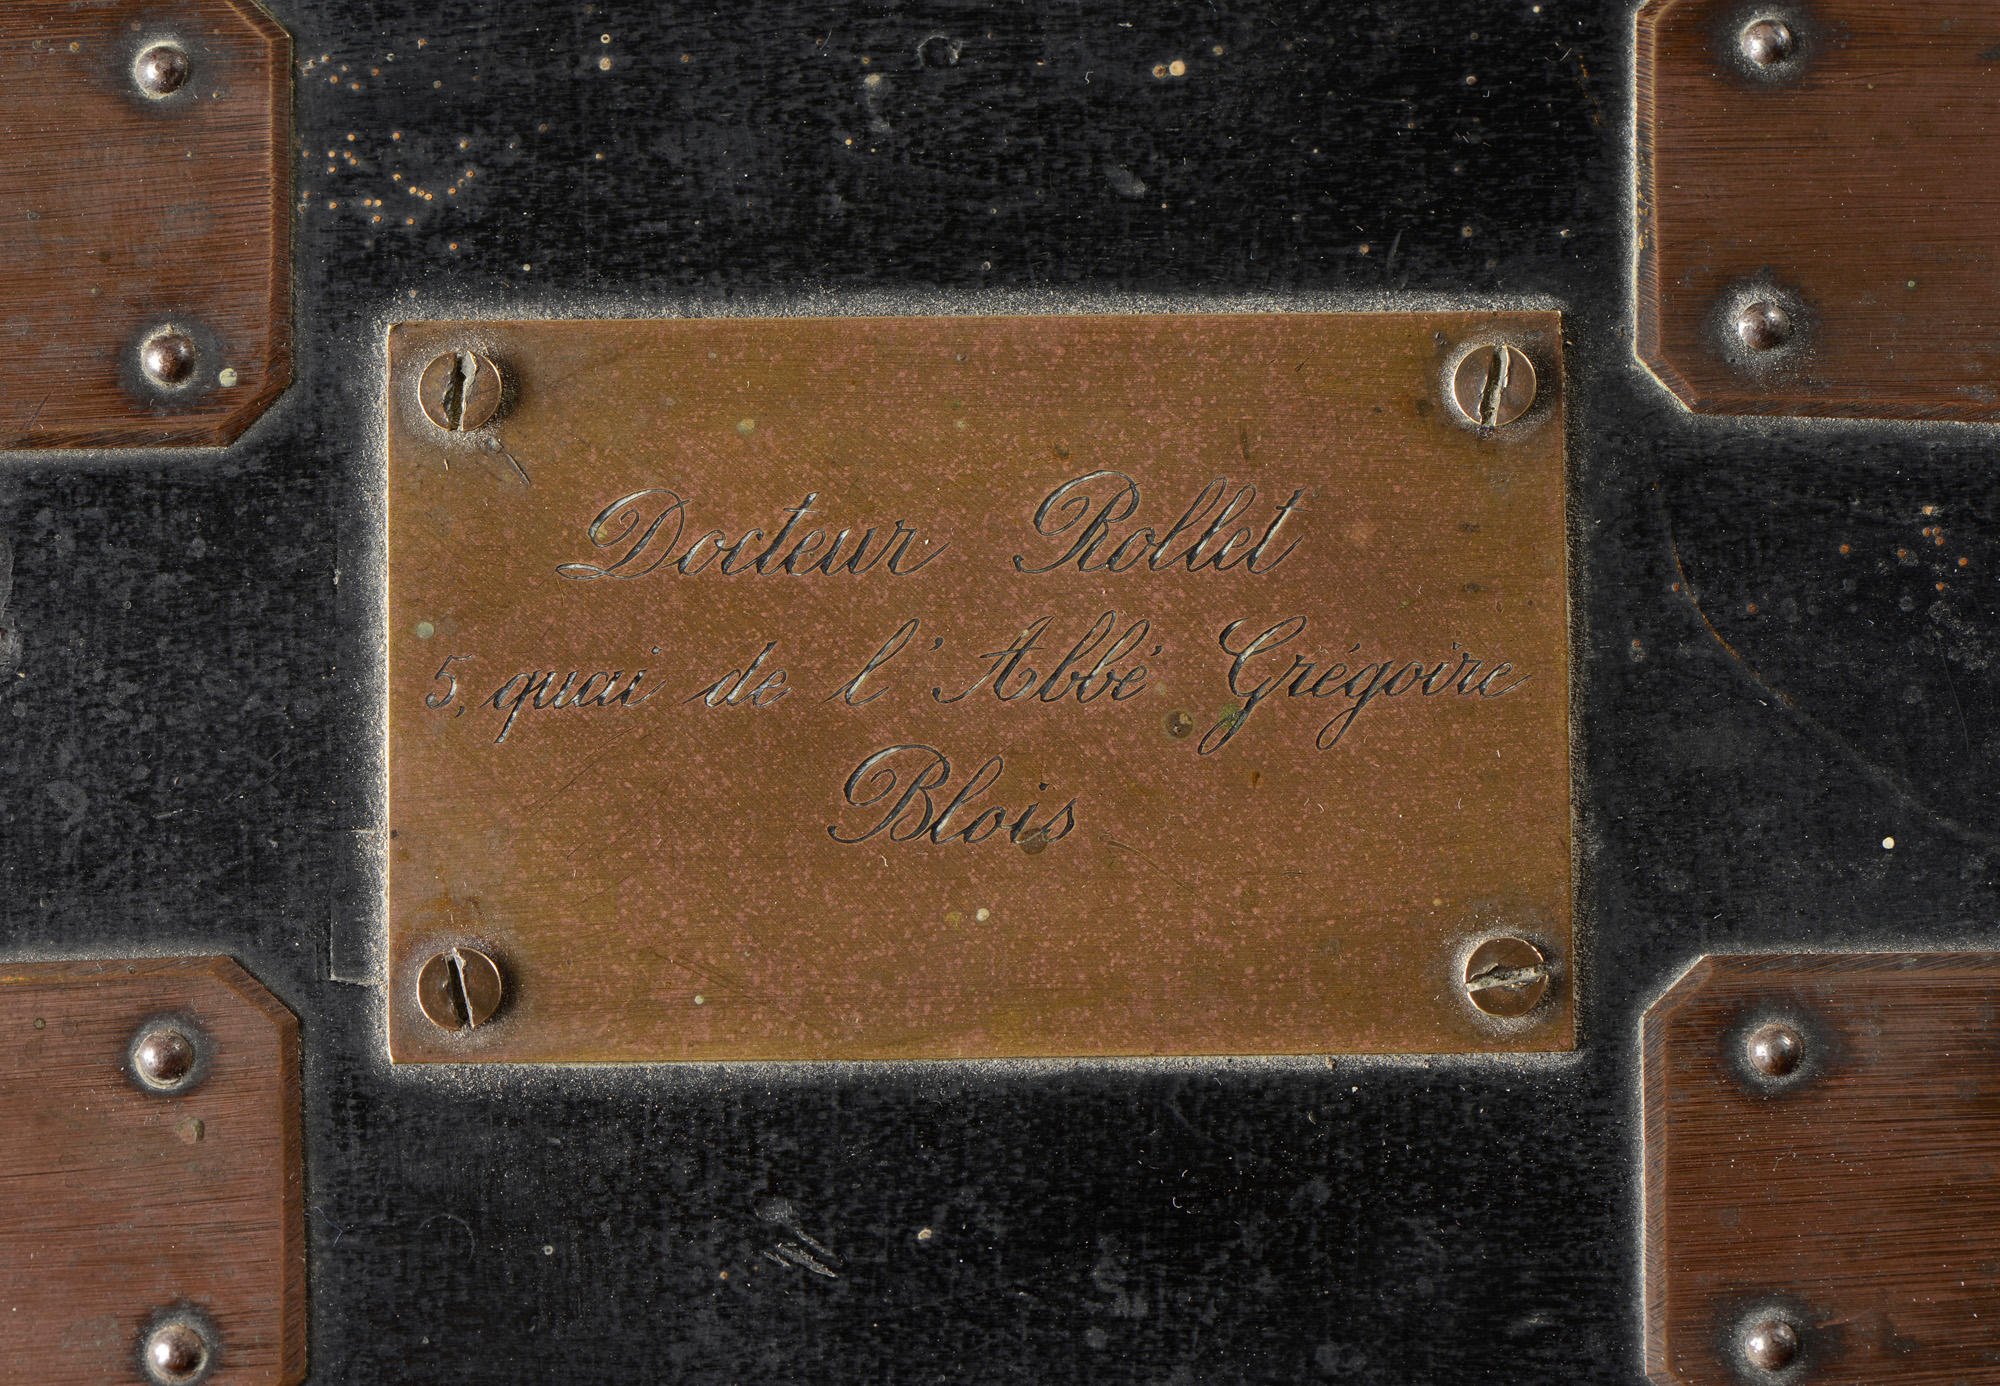 Docteur Rollet
5, quai de l'Abbé Grégoire
Blois